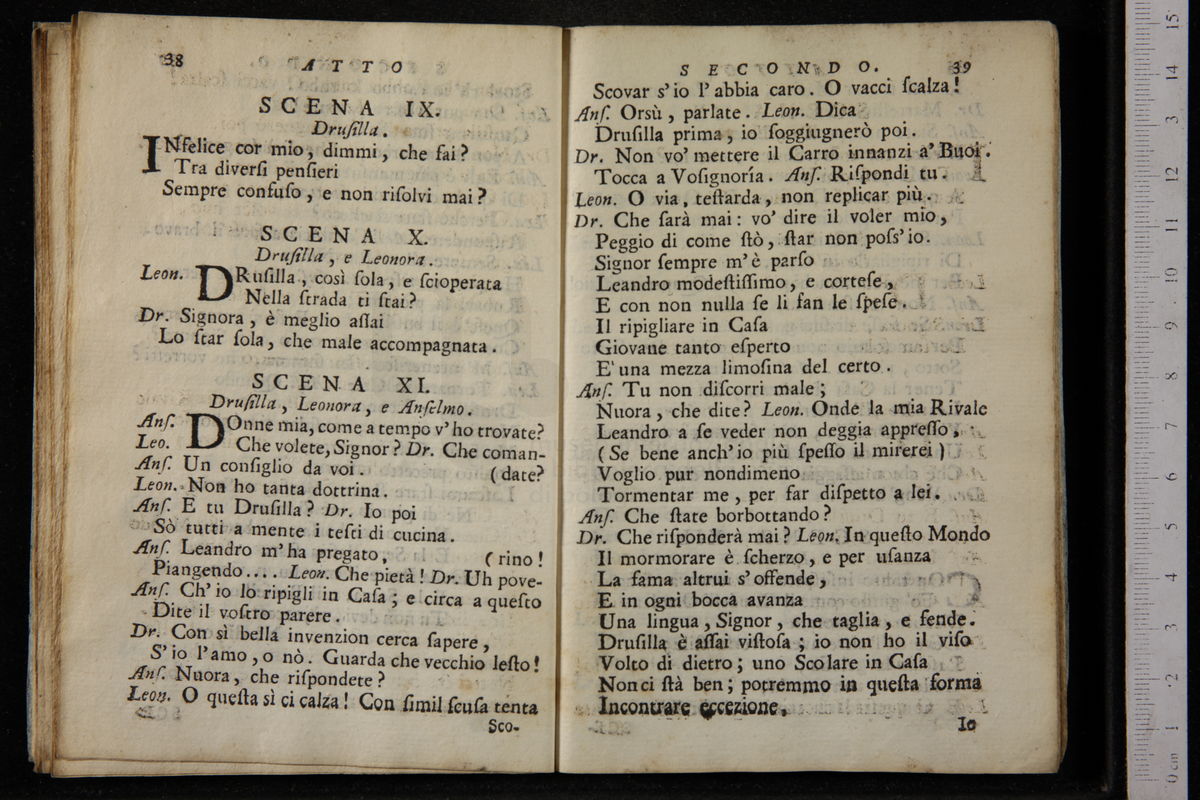 38
ATTO
SCENA IX.
Druſilla.
INfelice cor mio, dimmi, che fai?
Tra diverſi penſieri
Sempre confuſo, e non riſolvi mai?
SCENA X.
Druſilla, e Leonora.
Leon. DRuſilla, così ſola, e ſcioperata
Nella ſtrada ti ſtai?
Dr. Signora, è meglio aſſai
Lo ſtar ſola, che male accompagnata.
SCENA XI.
Druſilla, Leonora, e Anſelmo.
Anſ. DOnne mia, come a tempo v'ho trovate?
Leo. Che volete, Signor? Dr. Che coman-
Anſ. Un conſiglio da voi. (date?
Leon. Non ho tanta dottrina.
Anſ. E tu Druſilla? Dr. Io poi
Sò tutti a mente i teſti di cucina.
Anſ. Leandro m'ha pregato, (rino!
Piangendo.... Leon. Che pietà! Dr. Uh pove-
Anſ. Ch'io lo ripigli in Caſa; e circa a queſto
Dite il voſtro parere.
Dr. Con sì bella invenzion cerca ſapere,
S'io l'amo, o nò. Guarda che vecchio leſto!
Anſ. Nuora, che riſpondete?
Leon. O queſta sì ci calza! Con ſimil ſcuſa tenta
Sco-
SECONDO.
39
Scovar s'io l'abbia caro. O vacci ſcalza!
Anſ. Orsù, parlate. Leon. Dica
Druſilla prima, io ſoggiugnerò poi.
Dr. Non vo' mettere il Carro innanzi a' Buoi.
Tocca a Voſignoría. Anſ. Riſpondi tu.
Leon. O via, teſtarda, non replicar più.
Dr. Che ſarà mai: vo' dire il voler mio,
Peggio di come ſtò, ſtar non poſs'io.
Signor ſempre m'è parſo
Leandro modeſtiſſimo, e corteſe,
E con non nulla ſe li fan le ſpeſe.
Il ripigliare in Caſa
Giovane tanto eſperto
E' una mezza limoſina del certo.
Anſ. Tu non diſcorri male;
Nuora, che dite? Leon. Onde la mia Rivale
Leandro a ſe veder non deggia appreſſo,
(Se bene anch'io più ſpeſſo il mirerei)
Voglio pur nondimeno
Tormentar me, per far diſpetto a lei.
Anſ. Che ſtate borbottando?
Dr. Che riſponderà mai? Leon. In queſto Mondo
Il mormorare è ſcherzo, e per uſanza
La fama altrui s'offende,
E in ogni bocca avanza
Una lingua, Signor, che taglia, e fende.
Druſilla è aſſai viſtoſa; io non ho il viſo
Volto di dietro; uno Scolare in Caſa
Non ci ſtà ben; potremmo in queſta forma
Incontrare eccezione.
Io